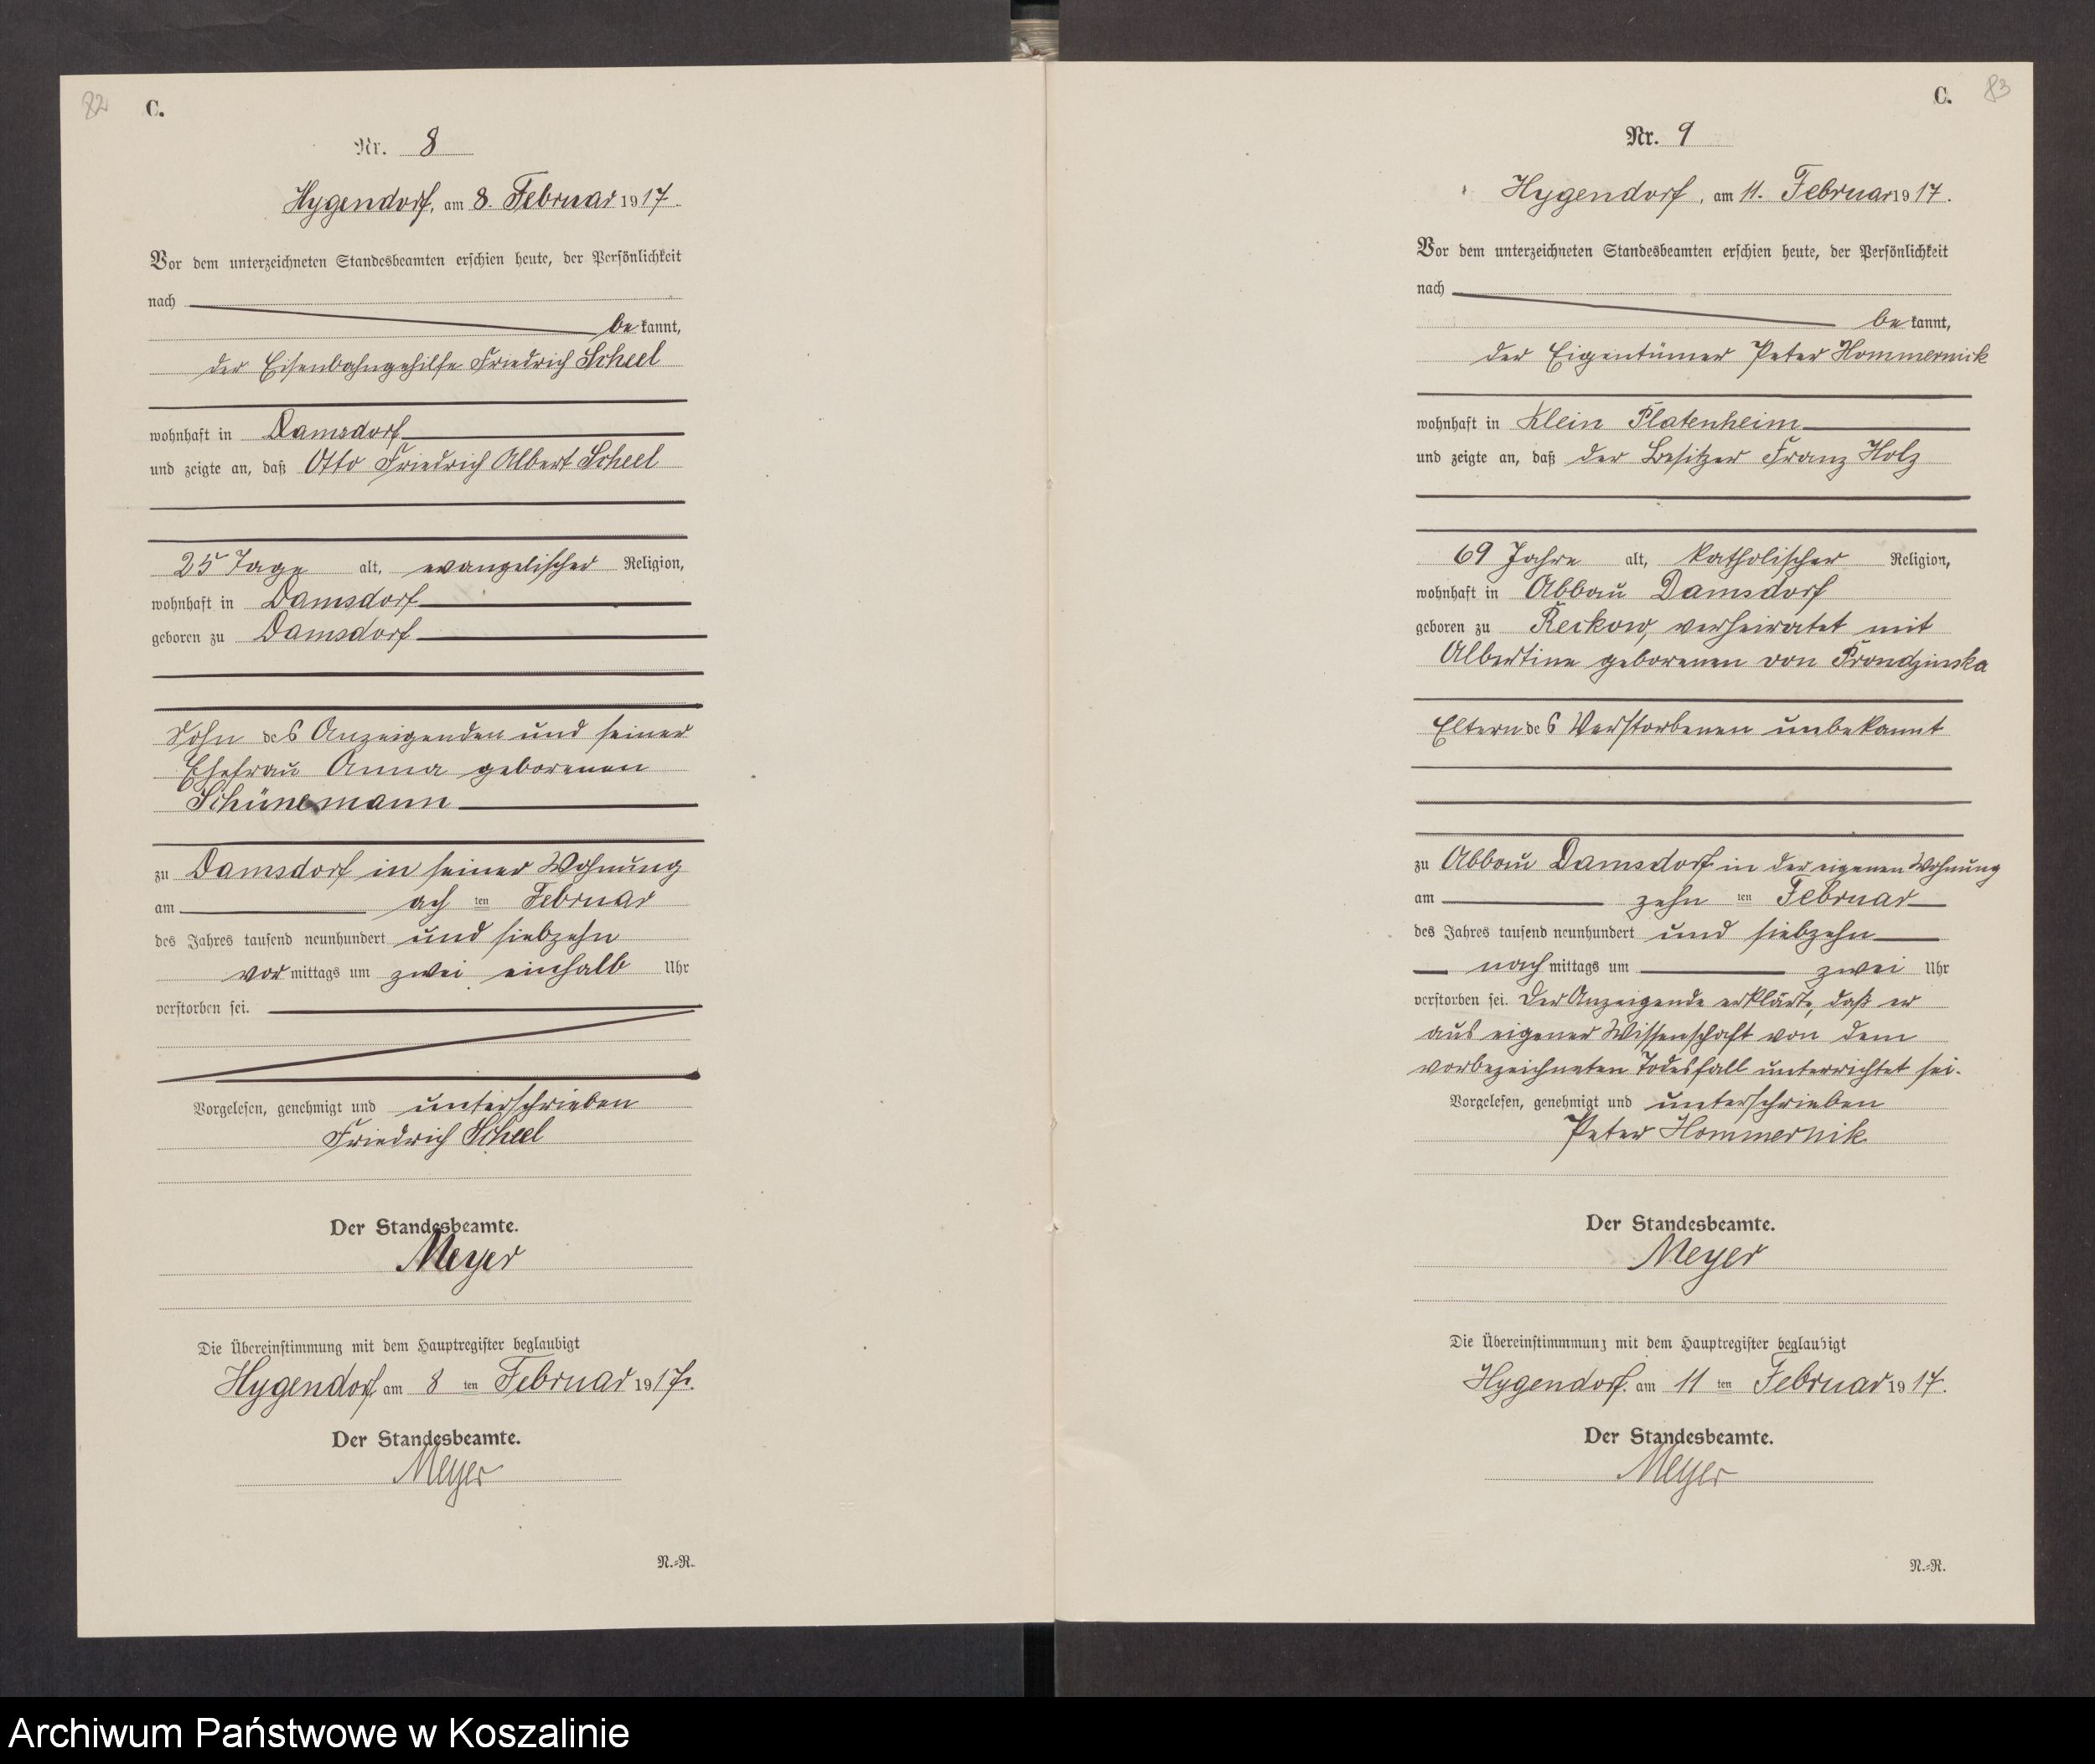 82
C.
Nr. 8
Hygendorf, am 8. Februar 1917.
Vor dem unterzeichneten Standesbeamten erschien heute, der Persönlichkeit
nach
be kannt,
der Eisenbahngehilfe Friedrich Scheel
wohnhaft in Damsdorf
und zeigte an, daß Otto Friedrich Albert Scheel
25 Tage alt, evangelischer Religion,
wohnhaft in Damsdorf
geboren zu Damsdorf
Sohn des Anzeigenden und seiner
Ehefrau Anna geborenen
Schünemann
zu Damsdorf in seiner Wohnung
am ach ten Februar
des Jahres tausend neunhundert und siebzehn
vor mittags um zwei einhalb Uhr
verstorben sei.
Vorgelesen, genehmigt und unterschrieben
Friedrich Scheel
Der Standesbeamte.
Meyer
Die Übereinstimmung mit dem Hauptregister beglaubigt
Hygendorf am 8 ten Februar 1917.
Der Standesbeamte.
Meyer
N.-R.
C. 83
Nr. 9
Hygendorf, am 11. Februar 1917.
Vor dem unterzeichneten Standesbeamten erschien heute, der Persönlichkeit
nach
be kannt,
der Eigentümer Peter Hommernick
wohnhaft in Klein Platenheim
und zeigte an, daß der Besitzer Franz Holz
69 Jahre alt, katholischer Religion,
wohnhaft in Abbau Damsdorf
geboren zu Reckow, verheiratet mit
Albertine geborenen von Prondzinska
Eltern des Verstorbenen unbekannt
zu Abbau Damsdorf in der eigenen Wohnung
am zehn ten Februar
des Jahres tausend neunhundert und siebzehn
nach mittags um zwei Uhr
verstorben sei. Der Anzeigende erklärte, daß er
aus eigener Wissenschaft von dem
vorbezeichneten Todesfall unterrichtet sei.
Vorgelesen, genehmigt und unterschrieben
Peter Hommernik
Der Standesbeamte.
Meyer
Die Übereinstimmmung mit dem Hauptregister beglaubigt
Hygendorf. am 11 ten Februar 1917.
Der Standesbeamte.
Meyer
N.-R.
Archiwum Państwowe w Koszalinie